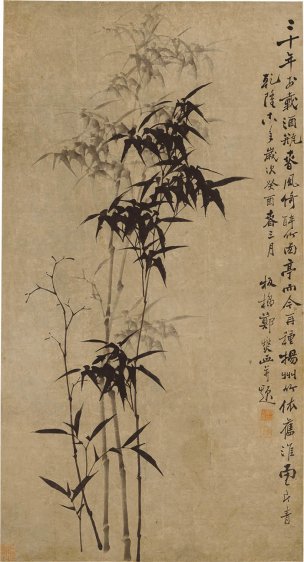 三十年前載酒瓶春風倚醉竹西亭而今再種楊州竹依舊淮南一片青
乾隆十八年歲次癸酉春三月
板橋鄭燮畫并題